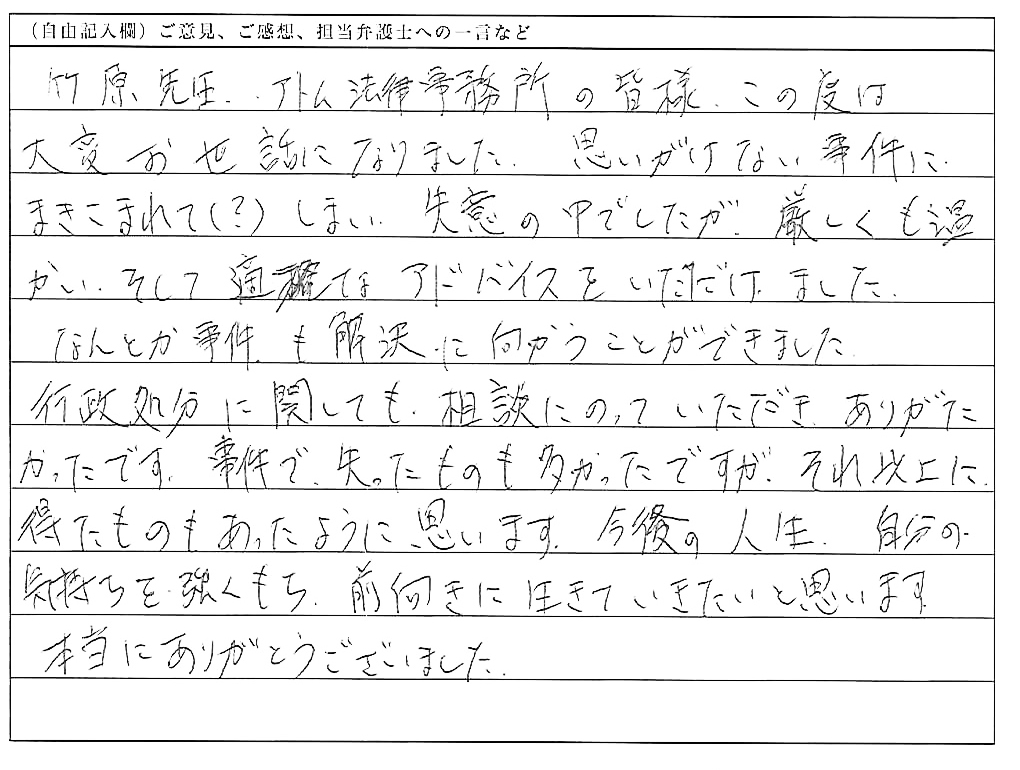 （自由記入欄）ご意見、ご感想、担当弁護士への一言など
竹原先生、アトム法律事務所の皆様、この度は
大変お世話になりました。思いがけない事件に
まきこまれて(?)しまい、失意の中でしたが、厳しくも温
かい、そして適確なアドバイスをいただけました。
なんとか事件も解決に向かうことができました。
行政処分に関しても、相談にのっていただき、ありがた
かったです。事件で、失ったものも多かったですが、それ以上に、
得たものもあったように思います。今後の人生、自分の
気持ちを強くもち、前向きに生きていきたいと思います。
本当にありがとうございました。